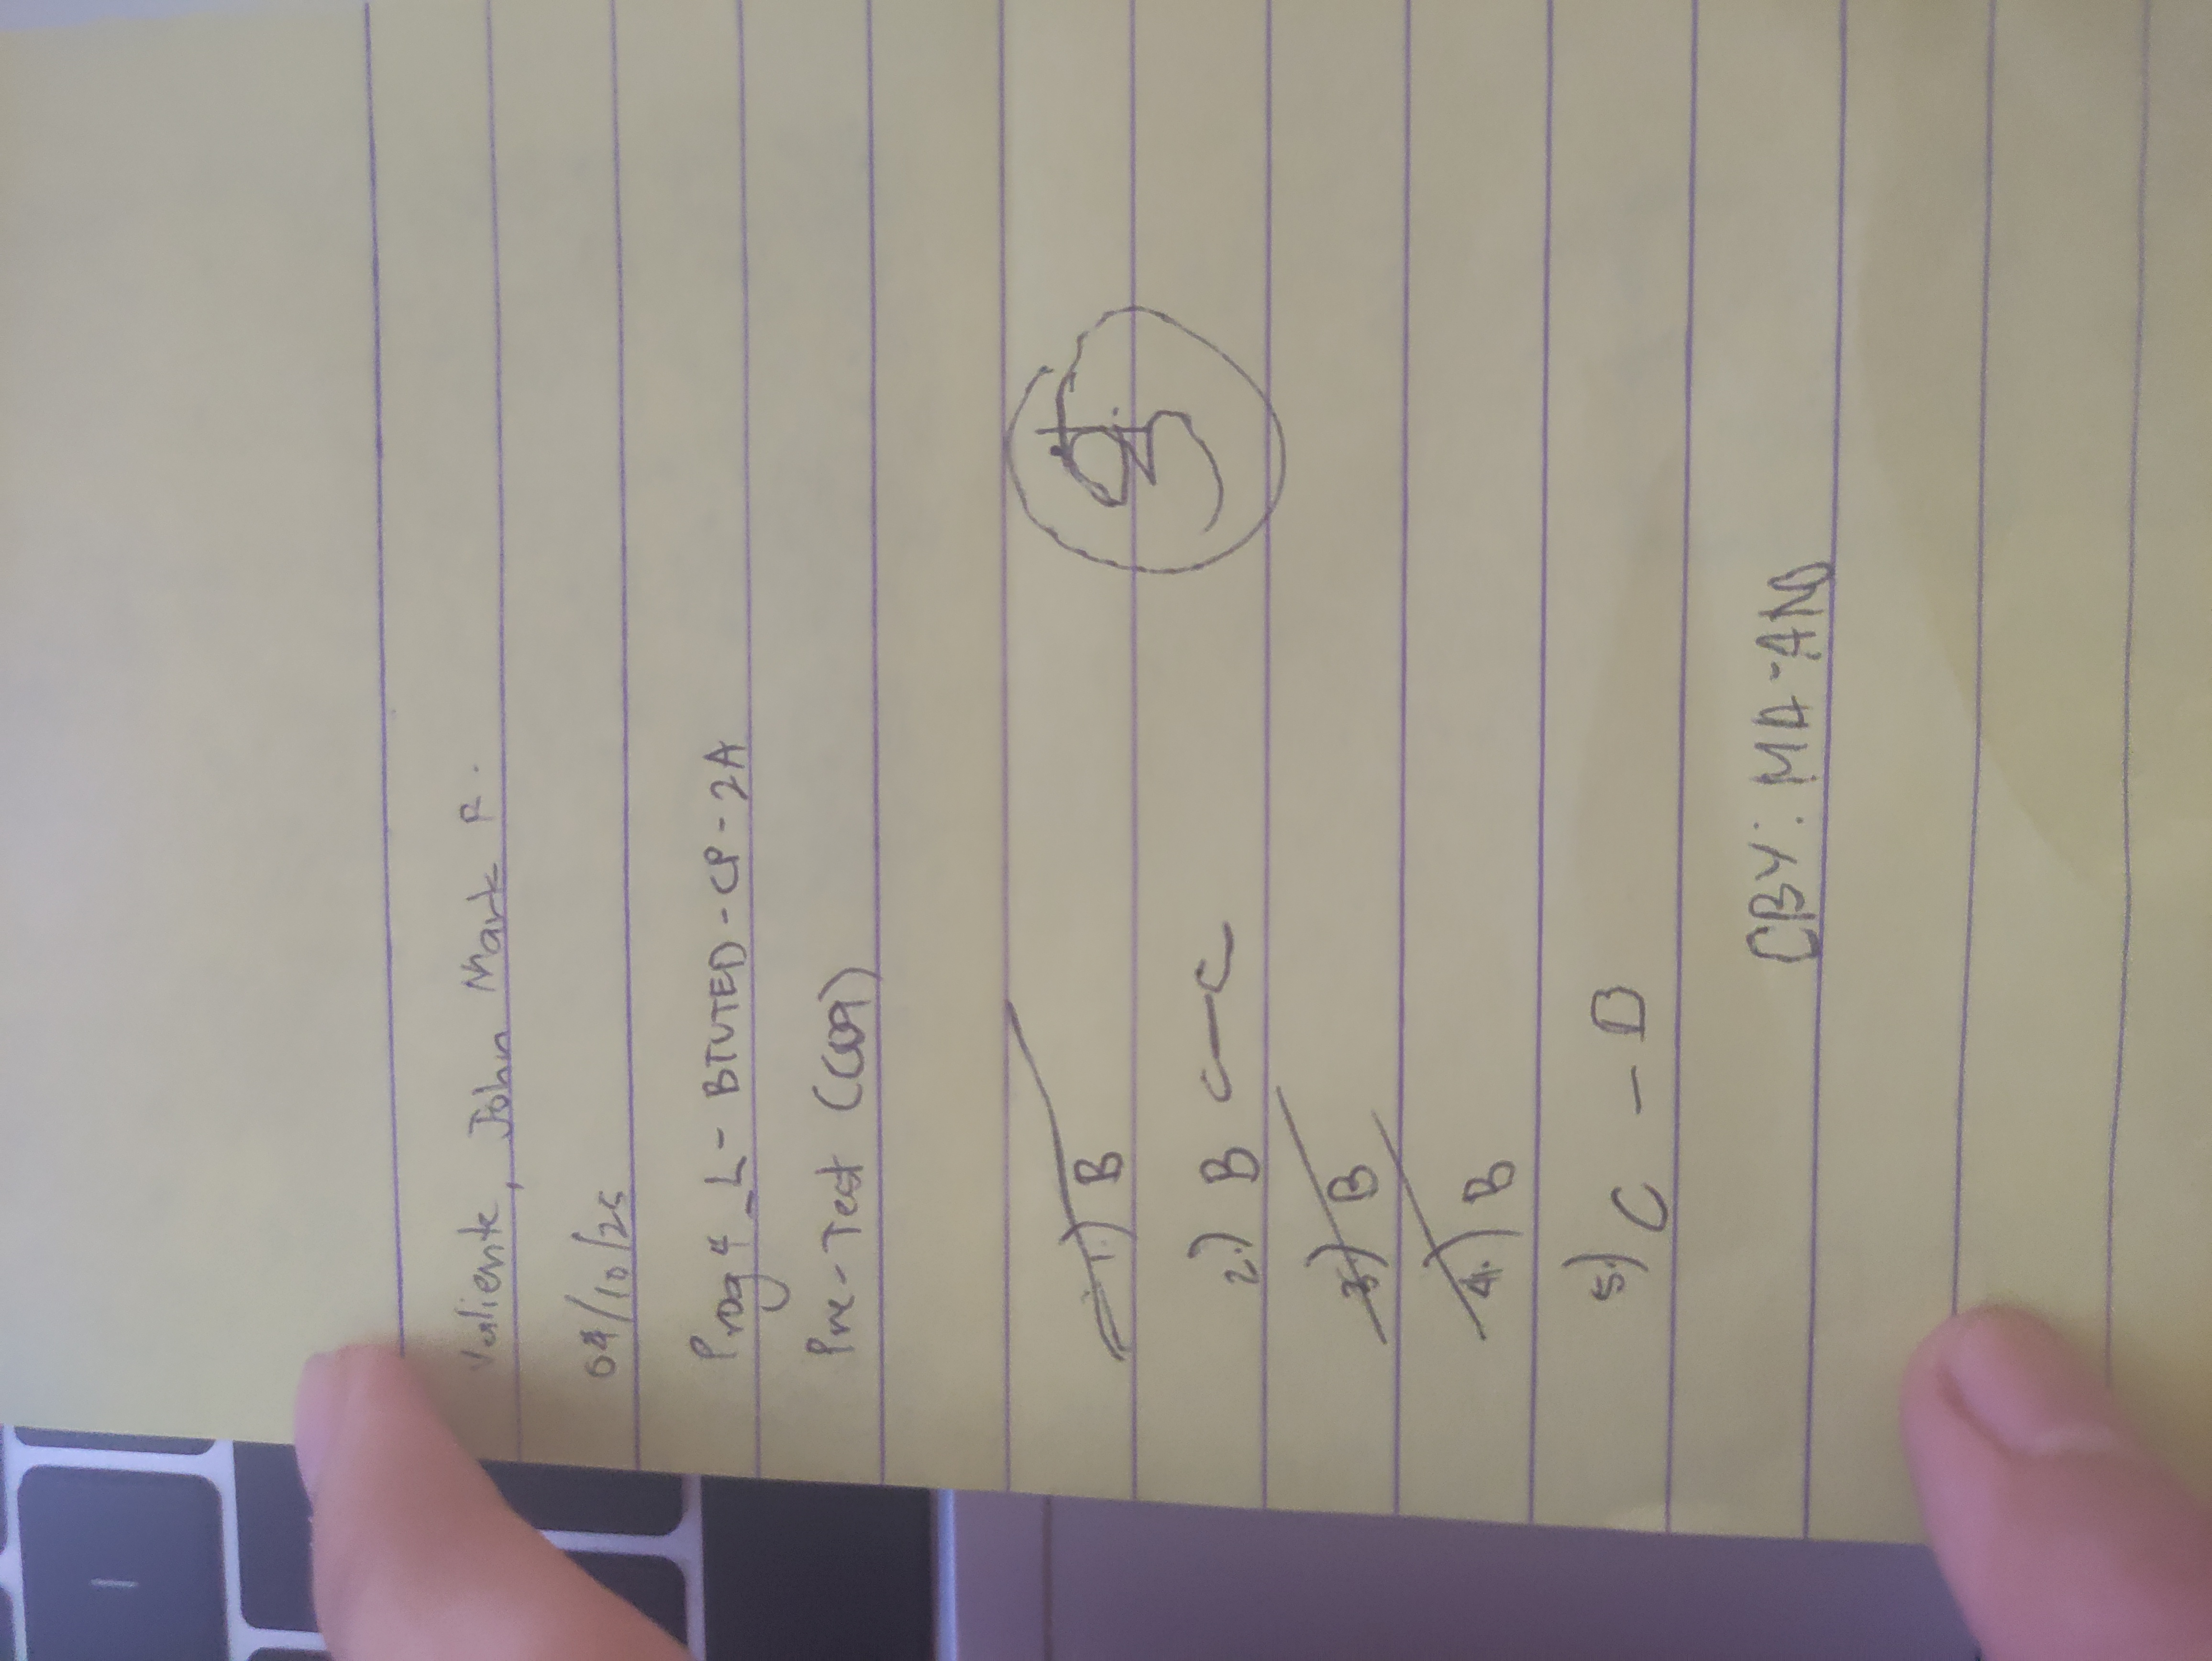 Valiente, John Mark R.
04/10/25
Prog 4_L - BTVTED - CP - 2A
Pre-Test (CO9)
1.) B
2.) B C—C
3.) B
4.) B
5.) C - D
CBY: MA-AN